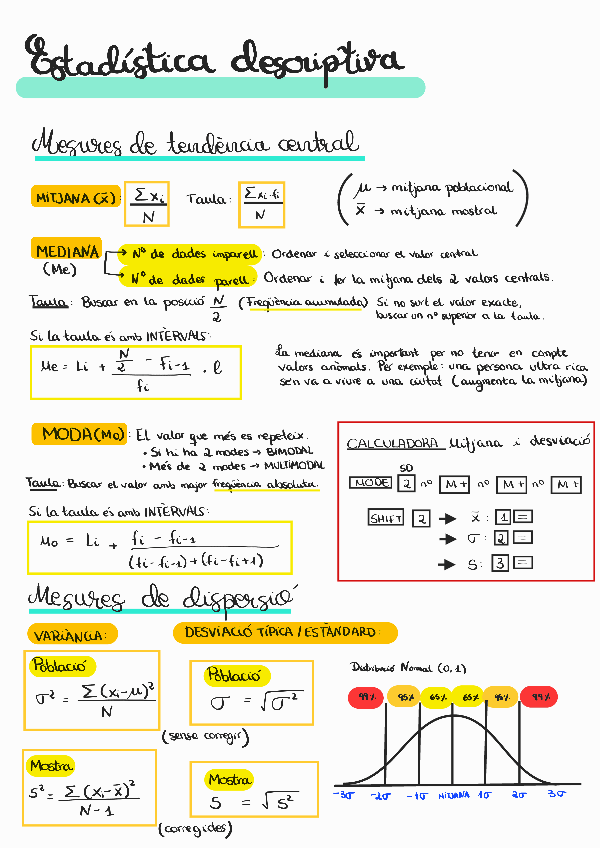 Estadística descriptiva
Mesures de tendència central
MITJANA (x̄): Σxi / N Taula: Σxi·fi / N
(μ → mitjana poblacional
x̄ → mitjana mostral)
MEDIANA (Me)
→ Nº de dades imparell: Ordenar i seleccionar el valor central
→ Nº de dades parell: Ordenar i fer la mitjana dels 2 valors centrals.
Taula: Buscar en la posició N/2 (Freqüència acumulada) Si no surt el valor exacte,
buscar un nº superior a la taula.
Si la taula és amb INTERVALS:
Me = Li + (N/2 - Fi-1) / fi · l
La mediana és important per no tenir en compte
valors anòmals. Per exemple: una persona ultra rica
se'n va a viure a una ciutat (augmenta la mitjana)
MODA (Mo): EL valor que més es repeteix.
• Si hi ha 2 modes → BIMODAL
• Més de 2 modes → MULTIMODAL
Taula: Buscar el valor amb major freqüència absoluta.
Si la taula és amb INTERVALS:
Mo = Li + (fi - fi-1) / ((fi-fi-1)+(fi-fi+1))
CALCULADORA Mitjana i desviació
SD
MODE 2 nº M+ nº M+ nº M+
SHIFT 2 → x̄: 1 =
→ σ: 2 =
→ S: 3 =
Mesures de dispersió
VARIÀNCIA:
Població
σ² = Σ(xi-μ)² / N
Mostra
S² = Σ(xi-x̄)² / N-1
DESVIACIÓ TÍPICA / ESTÀNDARD:
Població
σ = √σ²
(sense corregir)
Mostra
S = √S²
(corregides)
Distribució Normal (0,1)
99% 95% 65% 65% 95% 99%
-3σ -2σ -1σ MITJANA 1σ 2σ 3σ